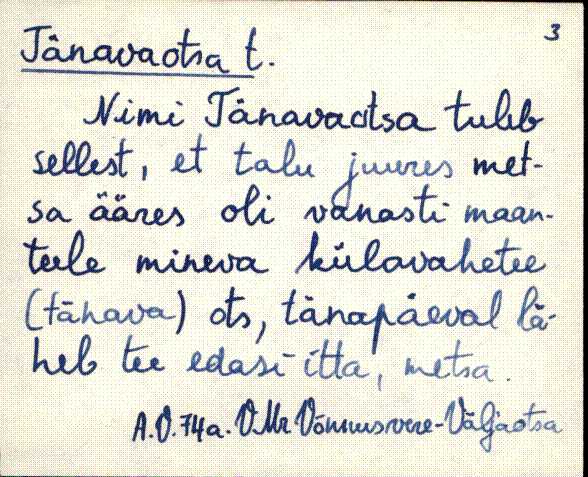 3
Tänavaotsa t.
Nimi Tänavaotsa tuleb
sellest, et talu juures met-
sa ääres oli vanasti maan-
teele mineva külavahetee
(tänava) ots, tänapäeval lä-
heb tee edasi itta, metsa.
A.O. 74a. V.Mr Võnnusvere-Väljaotsa